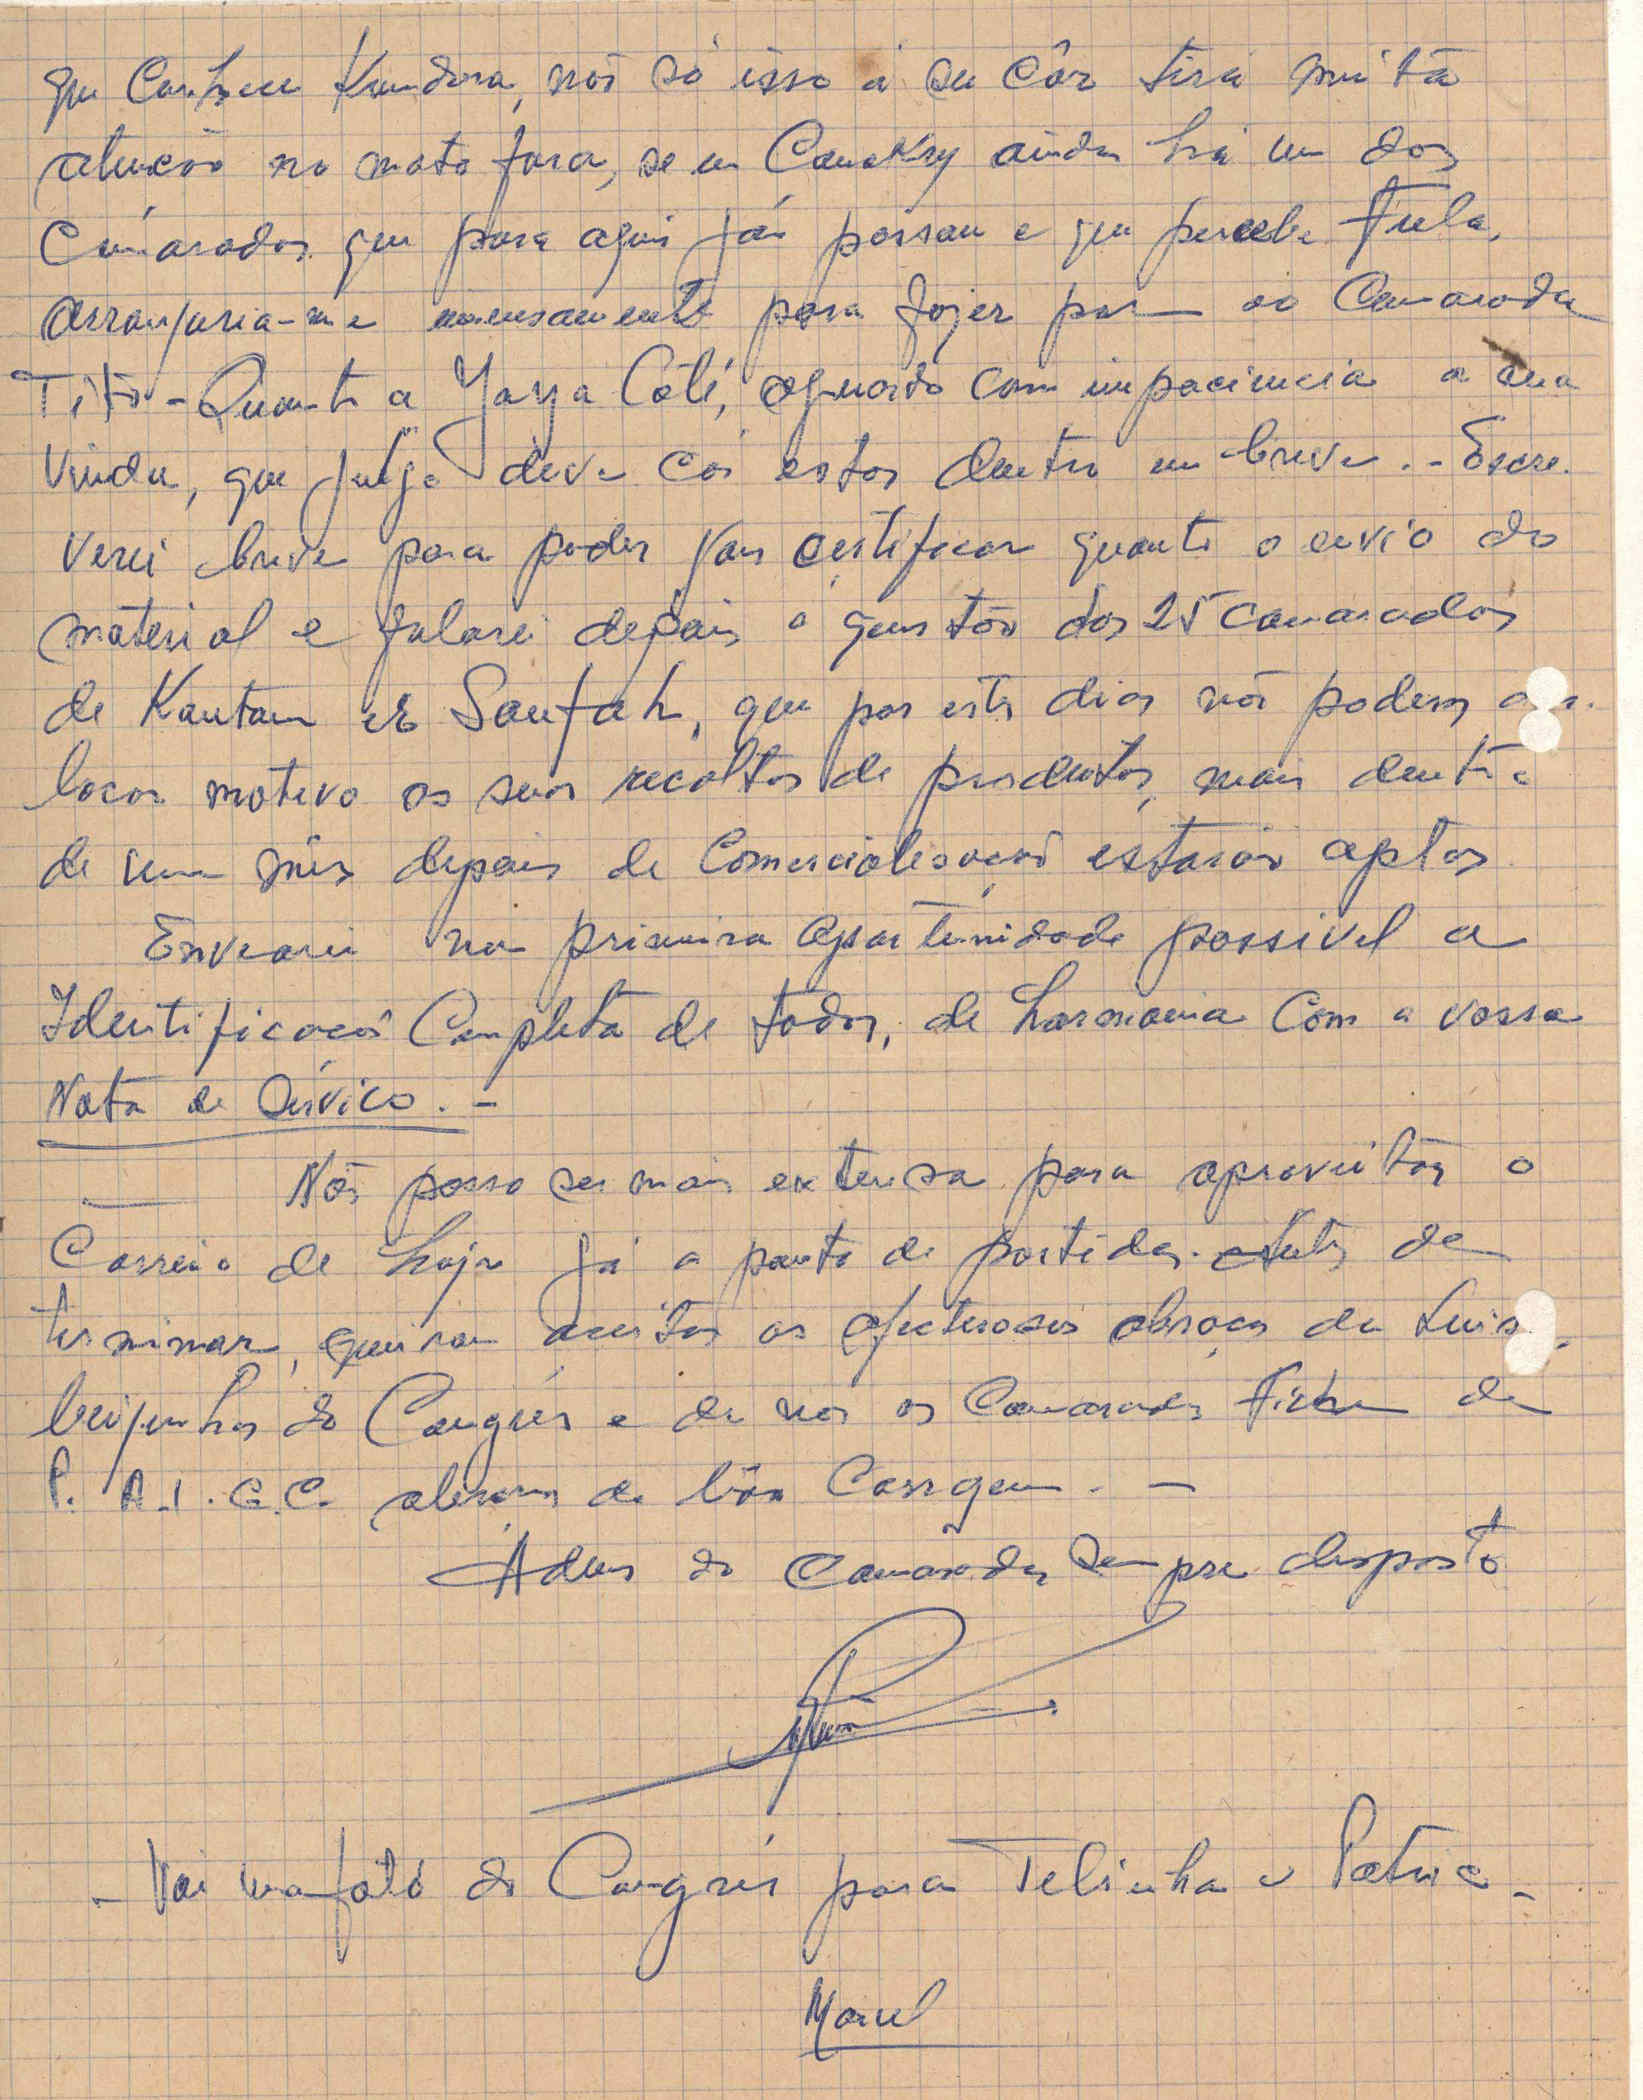 que Conhece Kundara, não só isso a su Côr tira muita
atencão no mato fara, se em Conakry ainda há um dos
Cámaradas que para aqui já passau e que percebe Fula,
arranjaria-me imensamente para fazer par ao Camarada
Tito - Quanto a Yaya Coté, aguardo com impaciencia a sua
Vinda, que julgo deve cá estar dentro em breve. - Escre.
verei breve para poder vas certificar quanto o envio do
material e falarei depais a questão dos 25 camaradas
de Kautam e Sanfah, que por estes dias não podem
locar motivo as suas recoltas de produtos, mais dentro
de um mês depais de Comercialisação estarão aptos.
Enviarei na primeira opartunidade possivel a
Identificação Completa de todos, de harmonia Com a vossa
Nota de Servico. -
Não posso ser mais extensa para aproveitar o
Correio de hoje já a ponto de partida. Antes de
terminar, queiram aceitar os afectuosos abraços de Luisa,
beijinhos do Congrés e de nós os Camaradas de
P. A.I.G.C. abraços de bôa Corragem. -
Adeus do Camarada Sempre disposto
- Vai uma fotó do Congrés para Telinha e Patrice -
Marcel